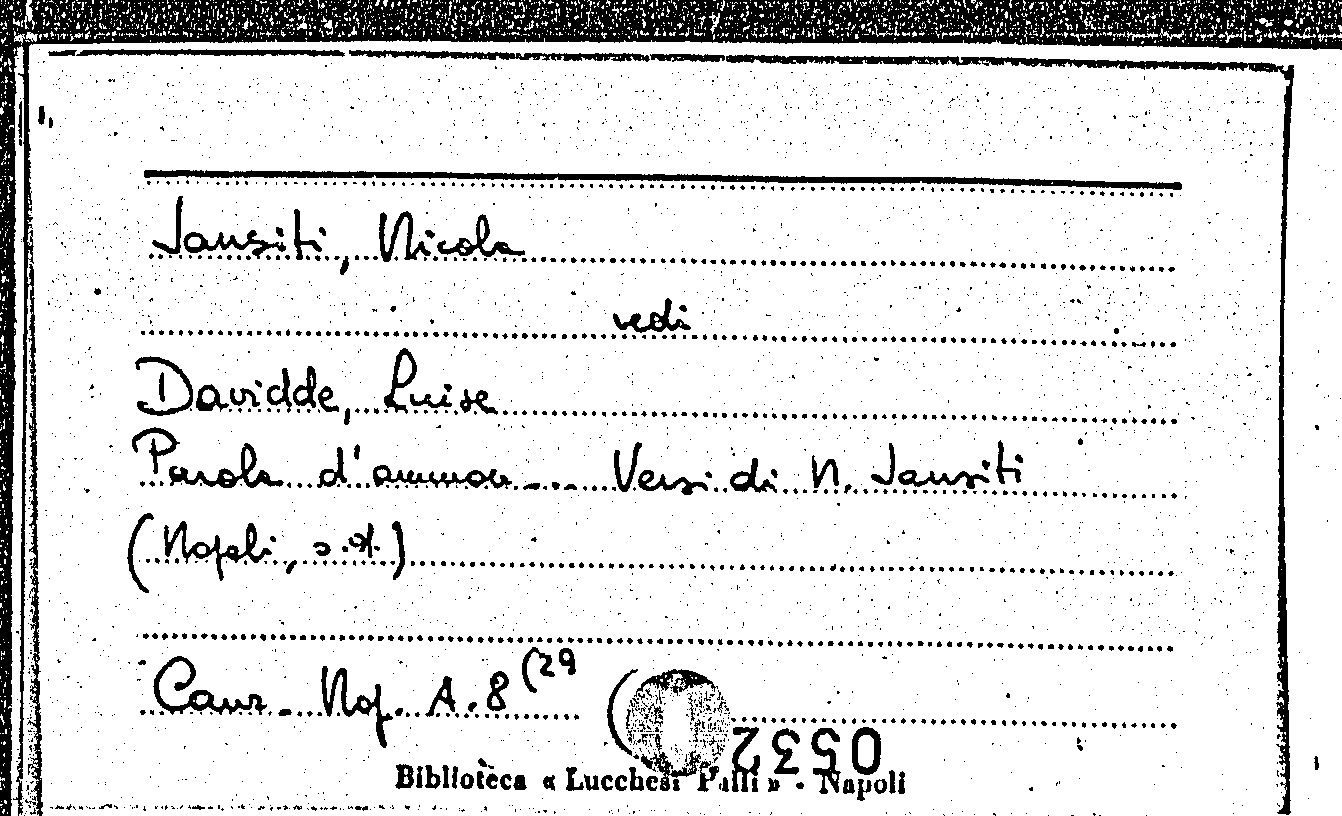 Jansiti, Nicola
vedi
Davidde, Luise
Parola d'ammor... Versi di N. Jansiti
(Napoli, s.d.)
Canz. Nap. A.8 (29
0532
Biblioteca « Lucchesi Palli » - Napoli